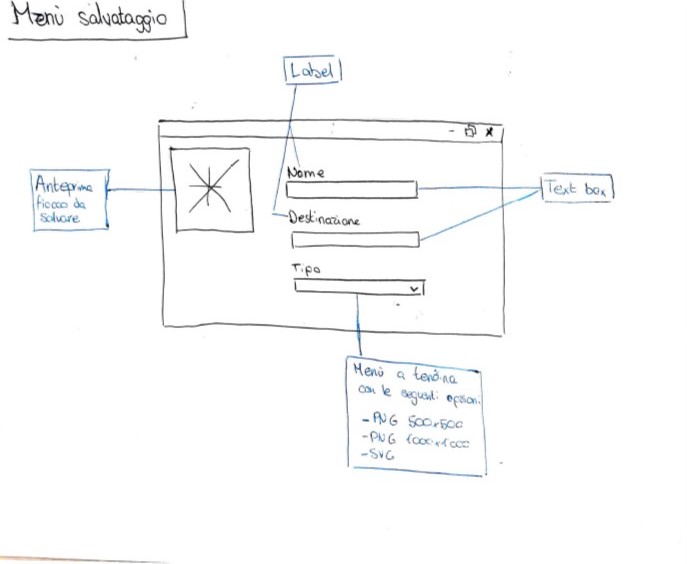 Menù salvataggio
Label
Nome
Anteprima
fiocco da
salvare
Text box
Destinazione
Tipo
Menù a tendina
con le seguenti opzioni:
- PNG 500x500
- PNG 1000x1000
- SVG